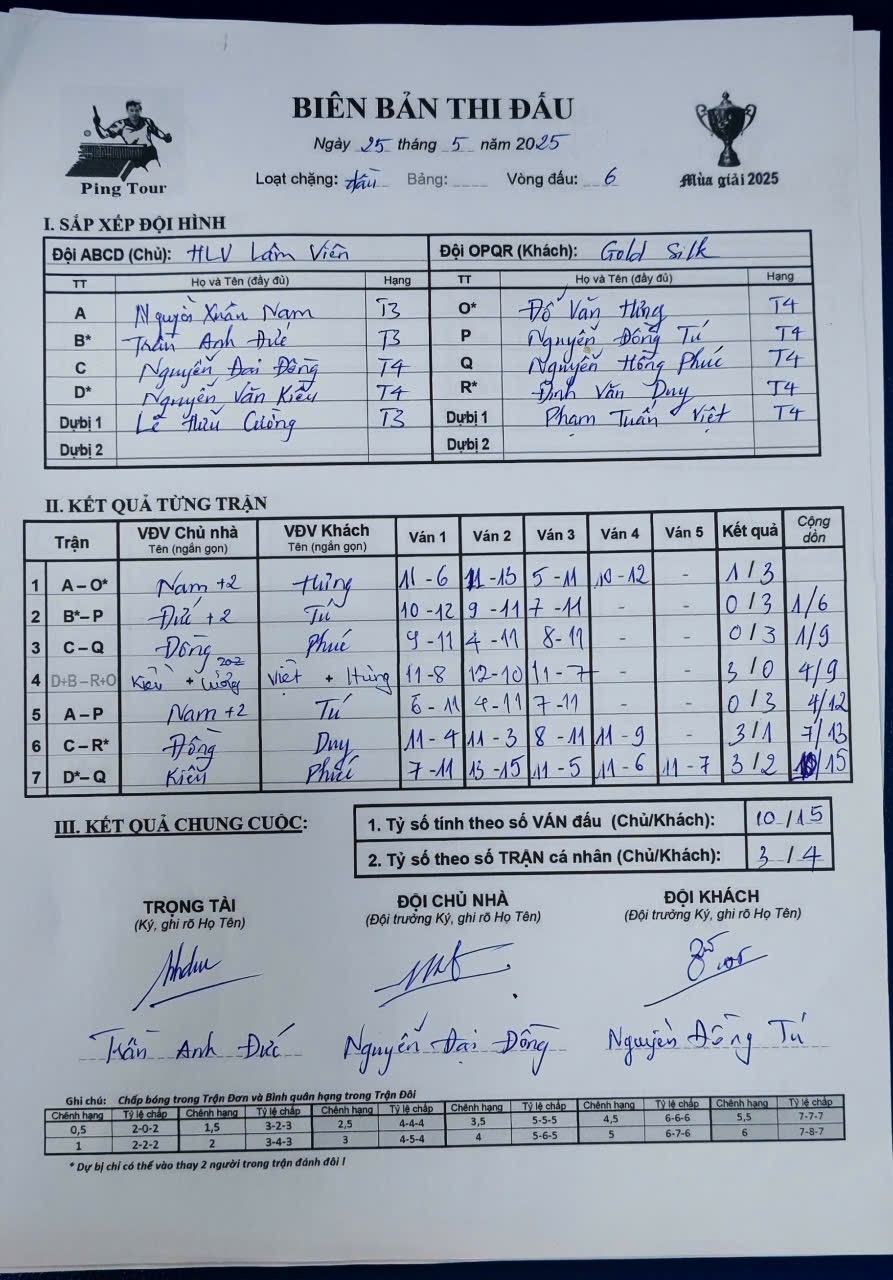 BIÊN BẢN THI ĐẤU
Ngày 25 tháng 5 năm 2025
Ping Tour
Loại chặng: đấu Bảng: Vòng đấu: 6
Mùa giải 2025
I. SẮP XẾP ĐỘI HÌNH
Đội ABCD (Chủ): HLV Lâm Viên Đội OPQR (Khách): Gold Silk
TT Họ và Tên (đầy đủ) Hạng TT Họ và Tên (đầy đủ) Hạng
A Nguyễn Xuân Nam T3 O* Đỗ Văn Hưng T4
B* Trần Anh Đức T3 P Nguyễn Đồng Tú T4
C Nguyễn Đại Đồng T4 Q Nguyễn Hồng Phúc T4
D* Nguyễn Văn Kiều T4 R* Đinh Văn Duy T4
Dự bị 1 Lê Hữu Cường T3 Dự bị 1 Phạm Tuấn Việt T4
Dự bị 2 Dự bị 2
II. KẾT QUẢ TỪNG TRẬN
Trận VĐV Chủ nhà Tên (ngắn gọn) VĐV Khách Tên (ngắn gọn) Ván 1 Ván 2 Ván 3 Ván 4 Ván 5 Kết quả Cộng dồn
1 A – O* Nam +2 Hưng 11 - 6 11 - 13 5 - 11 10 - 12 - 1 / 3
2 B* – P Đức +2 Tú 10 - 12 9 - 11 7 - 11 - - 0 / 3 1/6
3 C – Q Đồng Phúc 9 - 11 4 - 11 8 - 11 - - 0 / 3 1/9
4 D+B – R+O Kiều + Cường 202 Việt + Hưng 11 - 8 12 - 10 11 - 7 - - 3 / 0 4/9
5 A – P Nam +2 Tú 6 - 11 4 - 11 7 - 11 - - 0 / 3 4/12
6 C – R* Đồng Duy 11 - 4 11 - 3 8 - 11 11 - 9 - 3 / 1 7/13
7 D* – Q Kiều Phúc 7 - 11 13 - 15 11 - 5 11 - 6 11 - 7 3 / 2 10/15
III. KẾT QUẢ CHUNG CUỘC:
1. Tỷ số tính theo số VÁN đấu (Chủ/Khách): 10 / 15
2. Tỷ số theo số TRẬN cá nhân (Chủ/Khách): 3 / 4
TRỌNG TÀI ĐỘI CHỦ NHÀ ĐỘI KHÁCH
(Ký, ghi rõ Họ Tên) (Đội trưởng Ký, ghi rõ Họ Tên) (Đội trưởng Ký, ghi rõ Họ Tên)
Trần Anh Đức Nguyễn Đại Đồng Nguyễn Đồng Tú
Ghi chú: Chấp bóng trong Trận Đơn và Bình quân hạng trong Trận Đôi
Chênh hạng Tỷ lệ chấp Chênh hạng Tỷ lệ chấp Chênh hạng Tỷ lệ chấp Chênh hạng Tỷ lệ chấp Chênh hạng Tỷ lệ chấp Chênh hạng Tỷ lệ chấp
0,5 2-0-2 1,5 3-2-3 2,5 4-4-4 3,5 5-5-5 4,5 6-6-6 5,5 7-7-7
1 2-2-2 2 3-4-3 3 4-5-4 4 5-6-5 5 6-7-6 6 7-8-7
* Dự bị chỉ có thể vào thay 2 người trong trận đánh đôi !